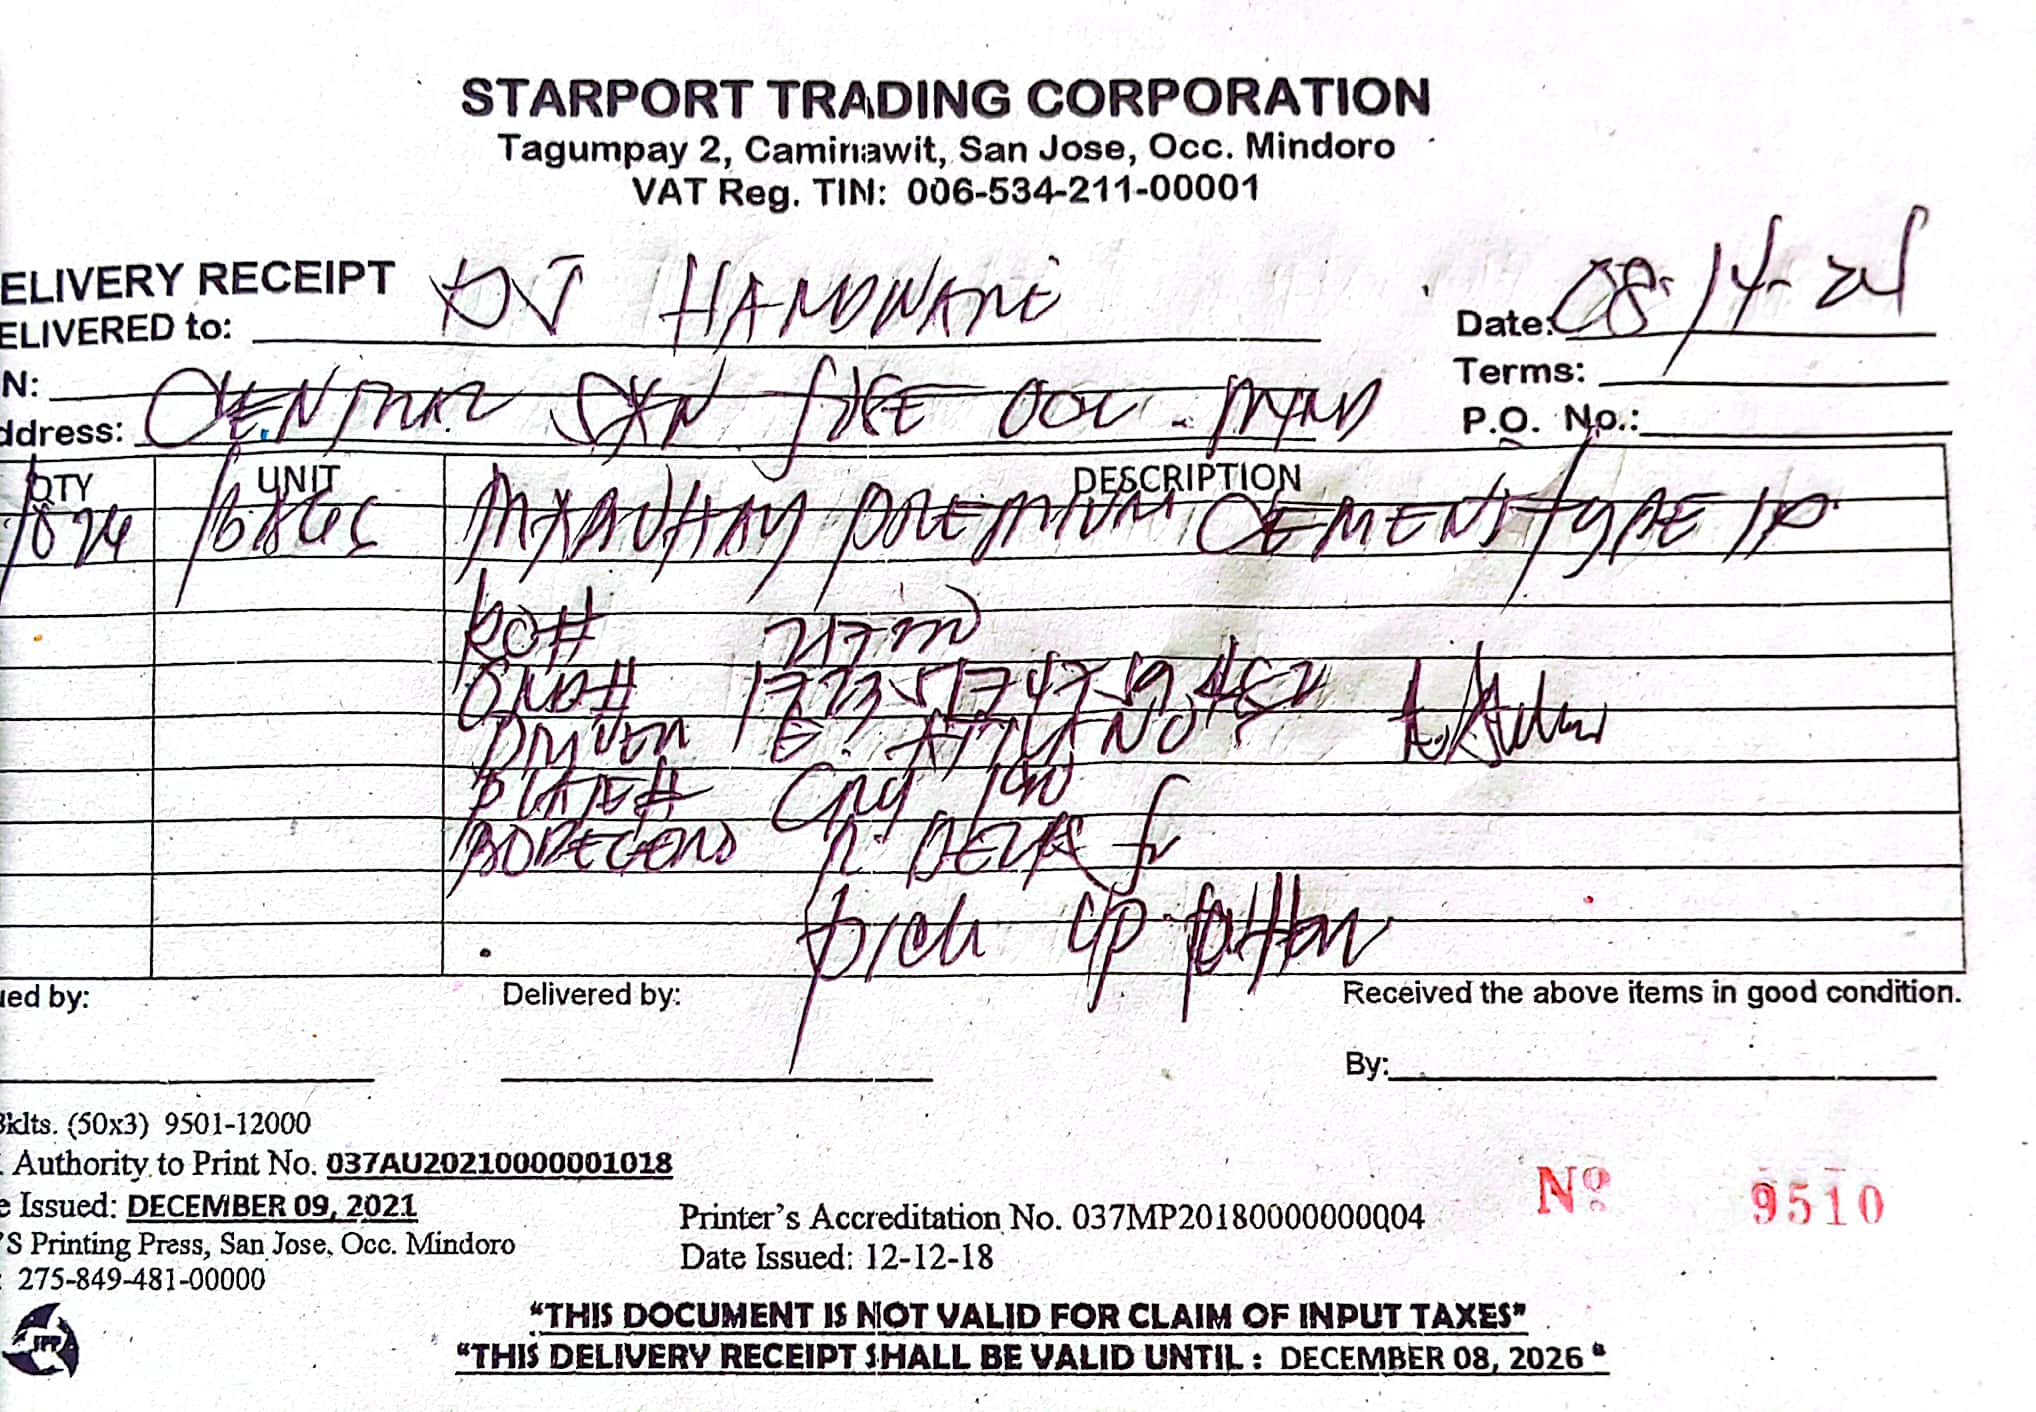 STARPORT TRADING CORPORATION
Tagumpay 2, Caminawit, San Jose, Occ. Mindoro
VAT Reg. TIN: 006-534-211-00001
ELIVERY RECEIPT
ELIVERED to: DJ HARDWARE
Date: 08-14-24
N:
Terms:
ddress: CENTRAL SAN JOSE OCC. MIND
P.O. No.:
QTY UNIT DESCRIPTION
BAGS MABUHAY PREMIUM CEMENT TYPE 1P
DRIVER
PLATE#
PICK UP
ued by:
Delivered by:
Received the above items in good condition.
By:
Bklts. (50x3) 9501-12000
. Authority to Print No. 037AU20210000001018
e Issued: DECEMBER 09, 2021
'S Printing Press, San Jose, Occ. Mindoro
: 275-849-481-00000
Printer's Accreditation No. 037MP20180000000004
Date Issued: 12-12-18
Nº: 9510
JPP
"THIS DOCUMENT IS NOT VALID FOR CLAIM OF INPUT TAXES"
"THIS DELIVERY RECEIPT SHALL BE VALID UNTIL : DECEMBER 08, 2026 "